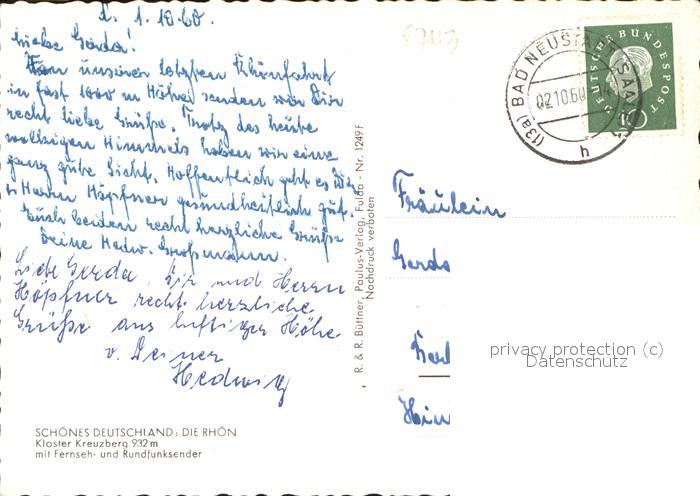 1.10.60.
Liebe Gerda!
Von unserer letzten Rhönfahrt
in fast 1000 m Höhe senden wir Dir
recht liebe Grüße. Trotz des heute
wolkigen Himmels haben wir eine
ganz gute Sicht. Hoffentlich geht es Dir
u. Herrn Höpfner gesundheitlich gut.
Euch beiden recht herzliche Grüße
Deine Hedw. Großmann.
Liebe Gerda, Dir und Herrn
Höpfner recht herzliche
Grüße aus luftiger Höhe
v. Deiner
Hedwig
SCHÖNES DEUTSCHLAND: DIE RHÖN
Kloster Kreuzberg 932 m
mit Fernseh- und Rundfunksender
R. & R. Büttner, Paulus-Verlag, Fulda - Nr. 1249 F
Nachdruck verboten
8743
(13a) BAD NEUSTADT (SAALE)
02.10.60
h
DEUTSCHE BUNDESPOST
10
Fräulein
Gerda
Hin
privacy protection (c)
Datenschutz